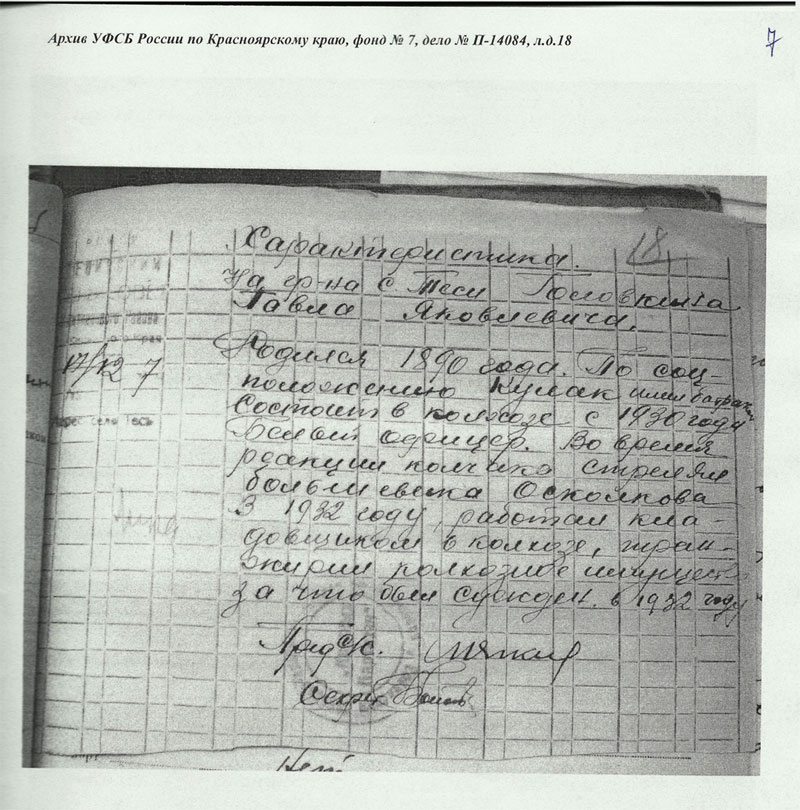 Архив УФСБ России по Красноярскому краю, фонд № 7, дело № П-14084, л.д.18
7
18.
Характеристика.
На гр-на с Теси Головкина
Павла Яковлевича.
17/12 7
Родился 1890 года. По соц-
положению Кулак имел батраков
Состоит в колхозе с 1930 году
Белый офицер. Во время
реакции колчака стрелял
большевика Осколкова
В 1932 году, работал кла-
довщиком в колхозе, тран-
жирил колхозное имущест-
за что был сужден. в 1932 году
село Тесь
Пред с/с.
Секрет